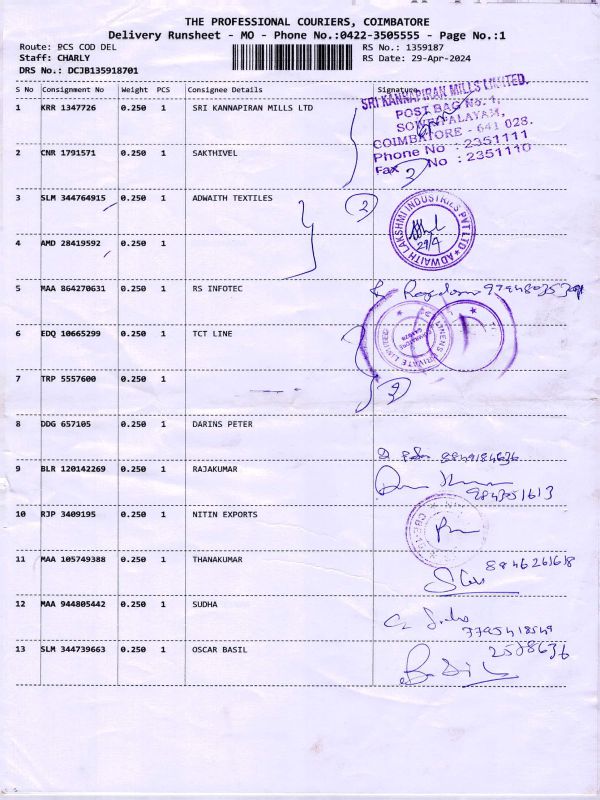 THE PROFESSIONAL COURIERS, COIMBATORE
Delivery Runsheet - MO - Phone No.:0422-3505555 - Page No.:1
Route: PCS COD DEL RS No.: 1359187
Staff: CHARLY RS Date: 29-Apr-2024
DRS No.: DCJB135918701
S No Consignment No Weight PCS Consignee Details Signature
1 KRR 1347726 0.250 1 SRI KANNAPIRAN MILLS LTD
SRI KANNAPIRAN MILLS LIMITED.
POST BAG No. 1,
SOWRIPALAYAM,
COIMBATORE - 641 028.
Phone No : 2351111
Fax No : 2351110
2 CNR 1791571 0.250 1 SAKTHIVEL 2
3 SLM 344764915 0.250 1 ADWAITH TEXTILES 2
ADWAITH LAKSHMI INDUSTRIES PVT LTD
29/4
4 AMD 28419592 0.250 1
5 MAA 864270631 0.250 1 RS INFOTEC
6 EDQ 10665299 0.250 1 TCT LINE
LINENS PRIVATE LIMITED
7 TRP 5557600 0.250 1 2
8 DDG 657105 0.250 1 DARINS PETER 8849184636
9 BLR 120142269 0.250 1 RAJAKUMAR
10 RJP 3409195 0.250 1 NITIN EXPORTS
11 MAA 105749388 0.250 1 THANAKUMAR 8846261618
12 MAA 944805442 0.250 1 SUDHA
7795418549
13 SLM 344739663 0.250 1 OSCAR BASIL 2508636